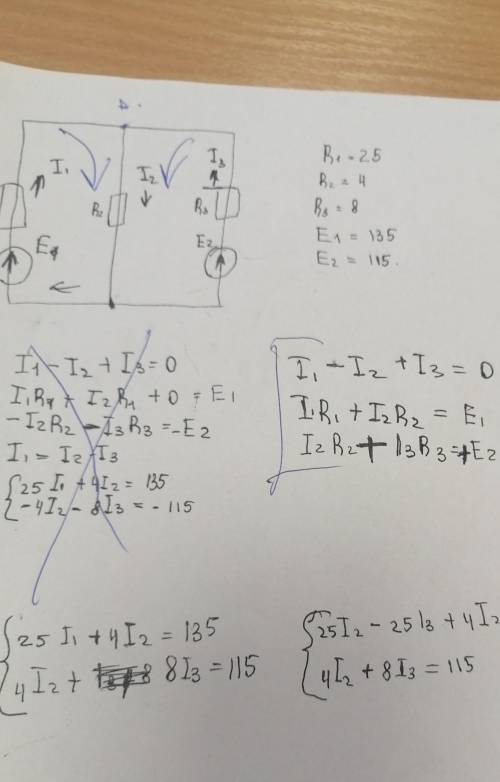 I1
I2
I3
R2
R3
E1
E2
R1 = 25
R2 = 4
R3 = 8
E1 = 135
E2 = 115.
I1 - I2 + I3 = 0
I1R1 + I2R1 + 0 = E1
-I2R2 - I3R3 = -E2
I1 = I2 - I3
25I1 + 4I2 = 135
-4I2 - 8I3 = -115
I1 - I2 + I3 = 0
I1R1 + I2R2 = E1
I2R2 + I3R3 = +E2
25I1 + 4I2 = 135
4I2 + 8I3 = 115
25I2 - 25I3 + 4I2
4I2 + 8I3 = 115